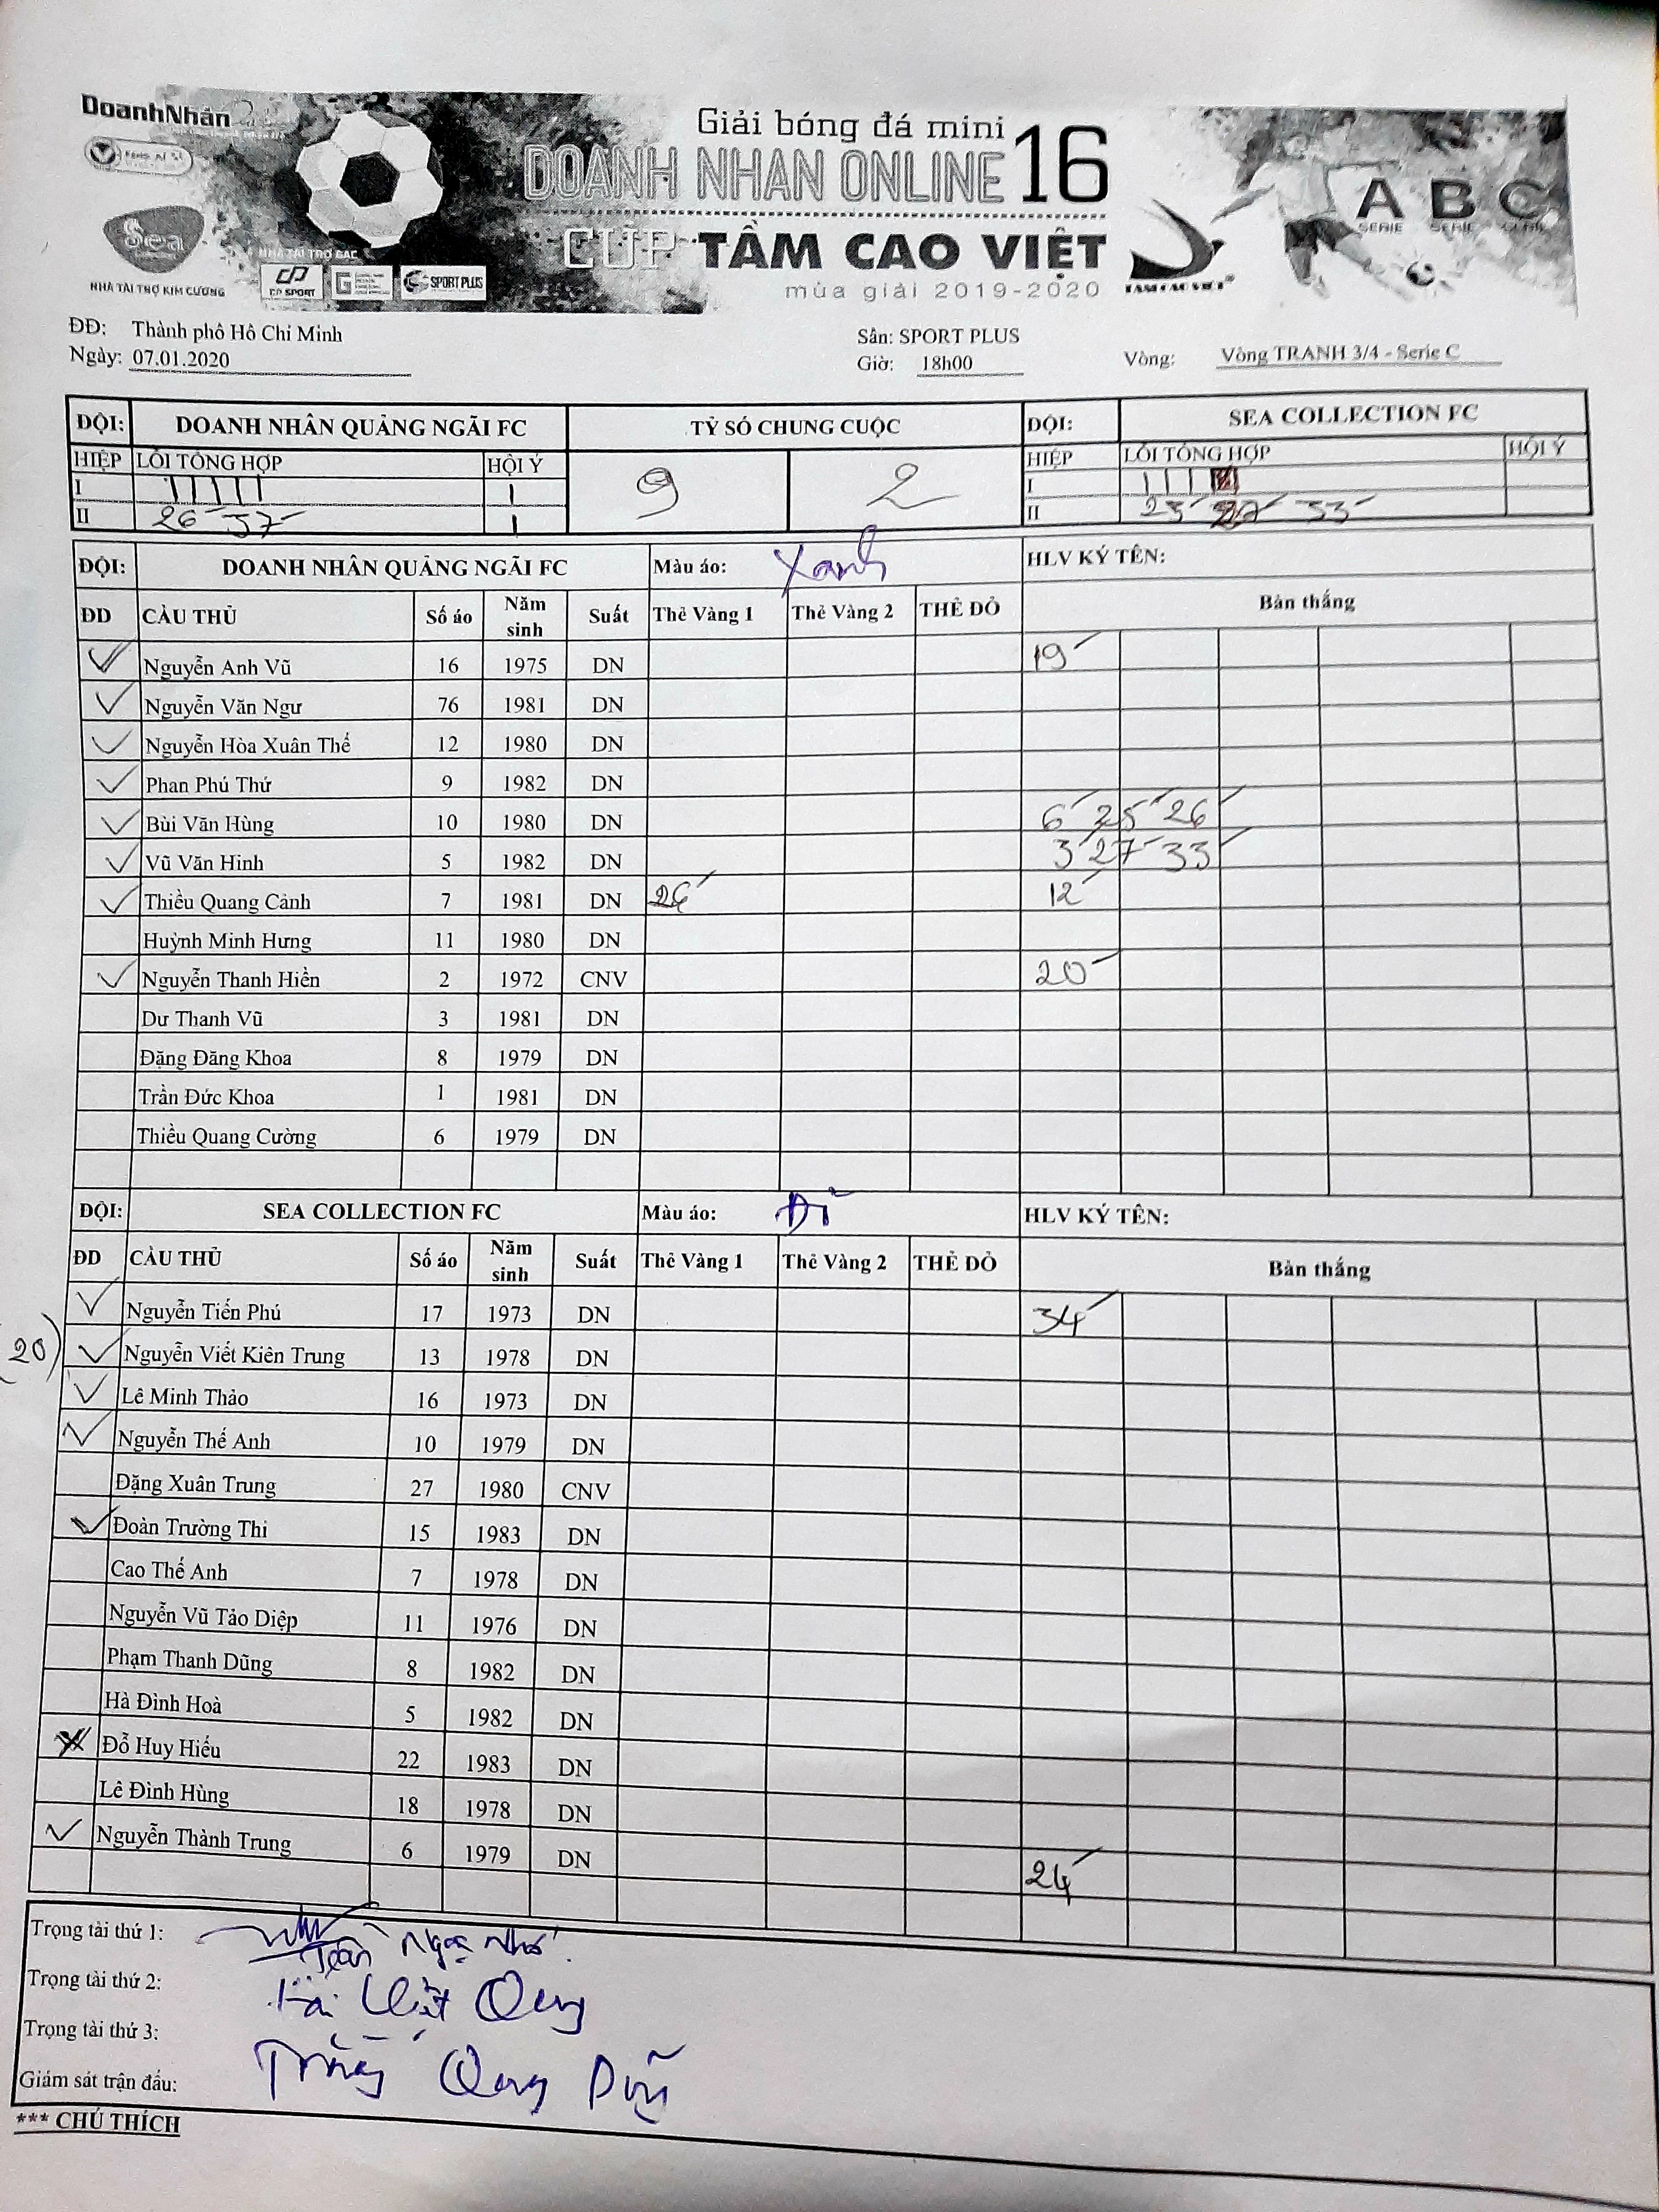 DoanhNhân
Sea
NHÀ TÀI TRỢ KIM CƯƠNG
NHÀ TÀI TRỢ BẠC
CP SPORT
SPORT PLUS
Giải bóng đá mini
DOANH NHAN ONLINE 16
CUP TẦM CAO VIỆT
mùa giải 2019-2020
TAM CAO VIET
A B C
SERIE SERIE SERIE
ĐĐ: Thành phố Hồ Chí Minh Sân: SPORT PLUS
Ngày: 07.01.2020 Giờ: 18h00 Vòng: Vòng TRANH 3/4 - Serie C
ĐỘI: DOANH NHÂN QUẢNG NGÃI FC TỶ SỐ CHUNG CUỘC ĐỘI: SEA COLLECTION FC
HIỆP LỖI TỔNG HỢP HỘI Ý 9 2 HIỆP LỖI TỔNG HỢP HỘI Ý
I IIIII I I III
II 26' 37' I II 23' 27' 33'
ĐỘI: DOANH NHÂN QUẢNG NGÃI FC Màu áo: Xanh HLV KÝ TÊN:
ĐD CẦU THỦ Số áo Năm sinh Suất Thẻ Vàng 1 Thẻ Vàng 2 THẺ ĐỎ Bàn thắng
Nguyễn Anh Vũ 16 1975 DN 19'
Nguyễn Văn Ngư 76 1981 DN
Nguyễn Hòa Xuân Thế 12 1980 DN
Phan Phú Thứ 9 1982 DN
Bùi Văn Hùng 10 1980 DN 6' 25' 26'
Vũ Văn Hinh 5 1982 DN 3' 27' 33'
Thiều Quang Cảnh 7 1981 DN 12'
Huỳnh Minh Hưng 11 1980 DN
Nguyễn Thanh Hiền 2 1972 CNV 20'
Dư Thanh Vũ 3 1981 DN
Đặng Đăng Khoa 8 1979 DN
Trần Đức Khoa 1 1981 DN
Thiều Quang Cường 6 1979 DN
ĐỘI: SEA COLLECTION FC Màu áo: HLV KÝ TÊN:
ĐD CẦU THỦ Số áo Năm sinh Suất Thẻ Vàng 1 Thẻ Vàng 2 THẺ ĐỎ Bàn thắng
Nguyễn Tiến Phú 17 1973 DN 34'
(20) Nguyễn Viết Kiên Trung 13 1978 DN
Lê Minh Thảo 16 1973 DN
Nguyễn Thế Anh 10 1979 DN
Đặng Xuân Trung 27 1980 CNV
Đoàn Trường Thi 15 1983 DN
Cao Thế Anh 7 1978 DN
Nguyễn Vũ Tảo Diệp 11 1976 DN
Phạm Thanh Dũng 8 1982 DN
Hà Đình Hoà 5 1982 DN
Đỗ Huy Hiếu 22 1983 DN
Lê Đình Hùng 18 1978 DN
Nguyễn Thành Trung 6 1979 DN 24'
Trọng tài thứ 1: Ngọc Nhớ
Trọng tài thứ 2:
Trọng tài thứ 3:
Giám sát trận đấu: Quang
*** CHÚ THÍCH